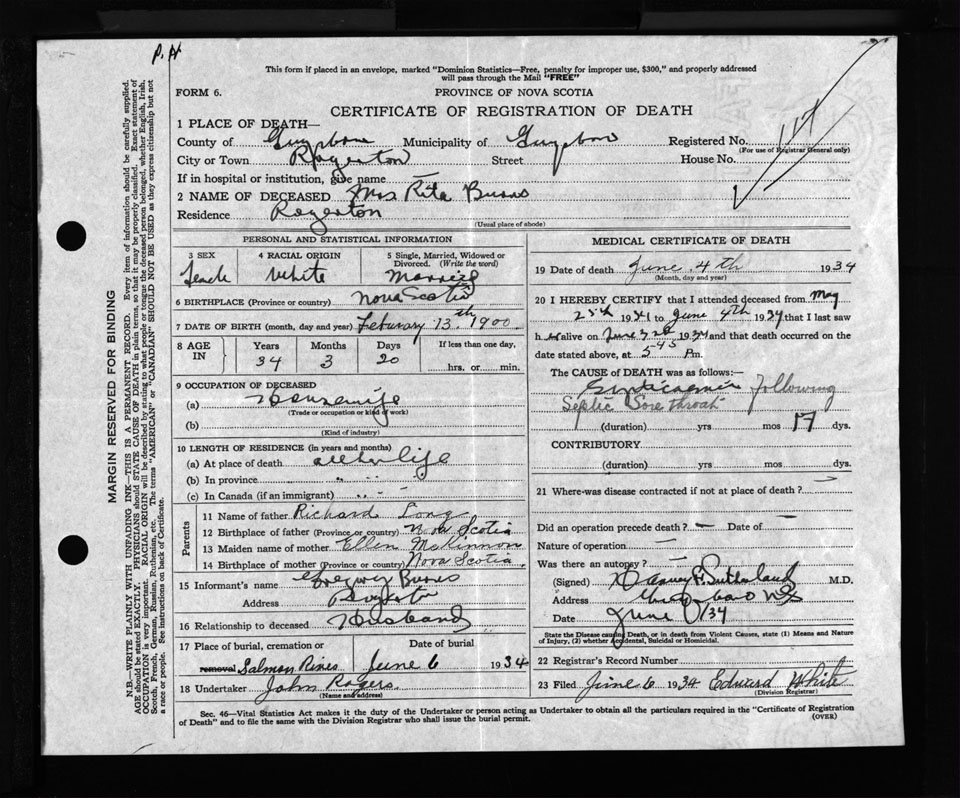 P. H
This form if placed in an envelope, marked "Dominion Statistics—Free, penalty for improper use, $300," and properly addressed
will pass through the Mail "FREE"
FORM 6. PROVINCE OF NOVA SCOTIA
CERTIFICATE OF REGISTRATION OF DEATH
1 PLACE OF DEATH—
County of Guysboro Municipality of Guysboro Registered No. 117
(For use of Registrar General only)
City or Town Rogerton Street House No.
If in hospital or institution, give name —
2 NAME OF DECEASED Mrs Rita Burns
Residence Rogerton
(Usual place of abode)
PERSONAL AND STATISTICAL INFORMATION
3 SEX 4 RACIAL ORIGIN 5 Single, Married, Widowed or
Divorced. (Write the word)
Female White Married
6 BIRTHPLACE (Province or country) Nova Scotia
7 DATE OF BIRTH (month, day and year) Feburary 13th 1900
8 AGE IN Years Months Days If less than one day,
34 3 20 hrs. or min.
9 OCCUPATION OF DECEASED
(a) Housewife
(Trade or occupation or kind of work)
(b)
(Kind of industry)
10 LENGTH OF RESIDENCE (in years and months)
(a) At place of death all her life
(b) In province " " "
(c) In Canada (if an immigrant)
Parents
11 Name of father Richard Long
12 Birthplace of father (Province or country) Nova Scotia
13 Maiden name of mother Ellen McKinnon
14 Birthplace of mother (Province or country) Nova Scotia
15 Informant's name Gregory Burns
Address Rogerton
16 Relationship to deceased Husband
17 Place of burial, cremation or Date of burial
removal Salmon River June 6 1934
18 Undertaker John Rogers
(Name and address)
MEDICAL CERTIFICATE OF DEATH
19 Date of death June 4th 1934
(Month, day and year)
20 I HEREBY CERTIFY that I attended deceased from May
1934 to June 4th 1934 that I last saw
h alive on June 1934 and that death occurred on the
date stated above, at 5-45 Pm.
The CAUSE of DEATH was as follows:—
Septicaemia following
Septic Sore throat
(duration) yrs mos 17 dys.
CONTRIBUTORY.
(duration) yrs mos dys.
21 Where was disease contracted if not at place of death?
Did an operation precede death? — Date of —
Nature of operation —
Was there an autopsy? —
(Signed) Sutherland M.D.
Address Guysboro NS
Date June 34
State the Disease causing Death, or in death from Violent Causes, state (1) Means and
Nature of Injury, (2) whether Accidental, Suicidal or Homicidal.
22 Registrar's Record Number
23 Filed June 6 1934 Edward White
(Division Registrar)
Sec. 46—Vital Statistics Act makes it the duty of the Undertaker or person acting as Undertaker to obtain all the particulars required in the "Certificate of Registration
of Death" and to file the same with the Division Registrar who shall issue the burial permit. (OVER)
MARGIN RESERVED FOR BINDING
N.B.—WRITE PLAINLY WITH UNFADING INK—THIS IS A PERMANENT RECORD. Every item of information should be carefully supplied.
AGE should be stated EXACTLY. PHYSICIANS should STATE CAUSE OF DEATH in plain terms, so that it may be properly classified. Exact statement of
OCCUPATION is very important. RACIAL ORIGIN will be described by stating to what people or tongue the deceased person belonged, whether English, Irish,
Scotch, French, German, Russian, Ruthenian, etc. The terms "AMERICAN" or "CANADIAN" SHOULD NOT BE USED as they express citizenship but not
a race or people. See instructions on back of Certificate.